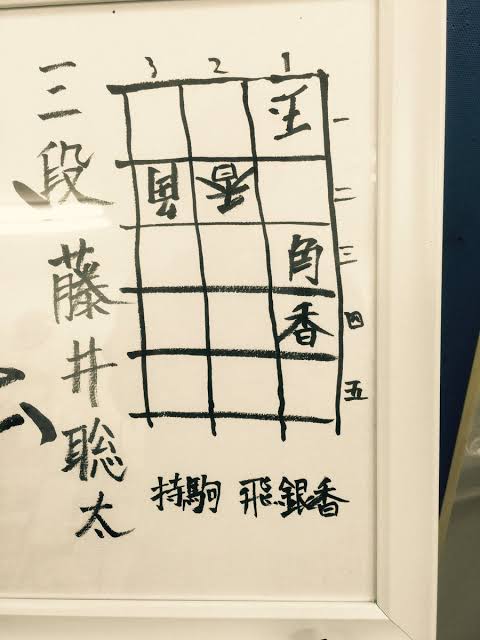 三段 藤井聡太
3 2 1
王 一
角 香 二
角 三
香 四
五
持駒 飛銀香